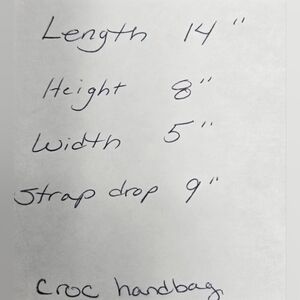 Length 14"
Height 8"
Width 5"
Strap drop 9"
Croc handbag